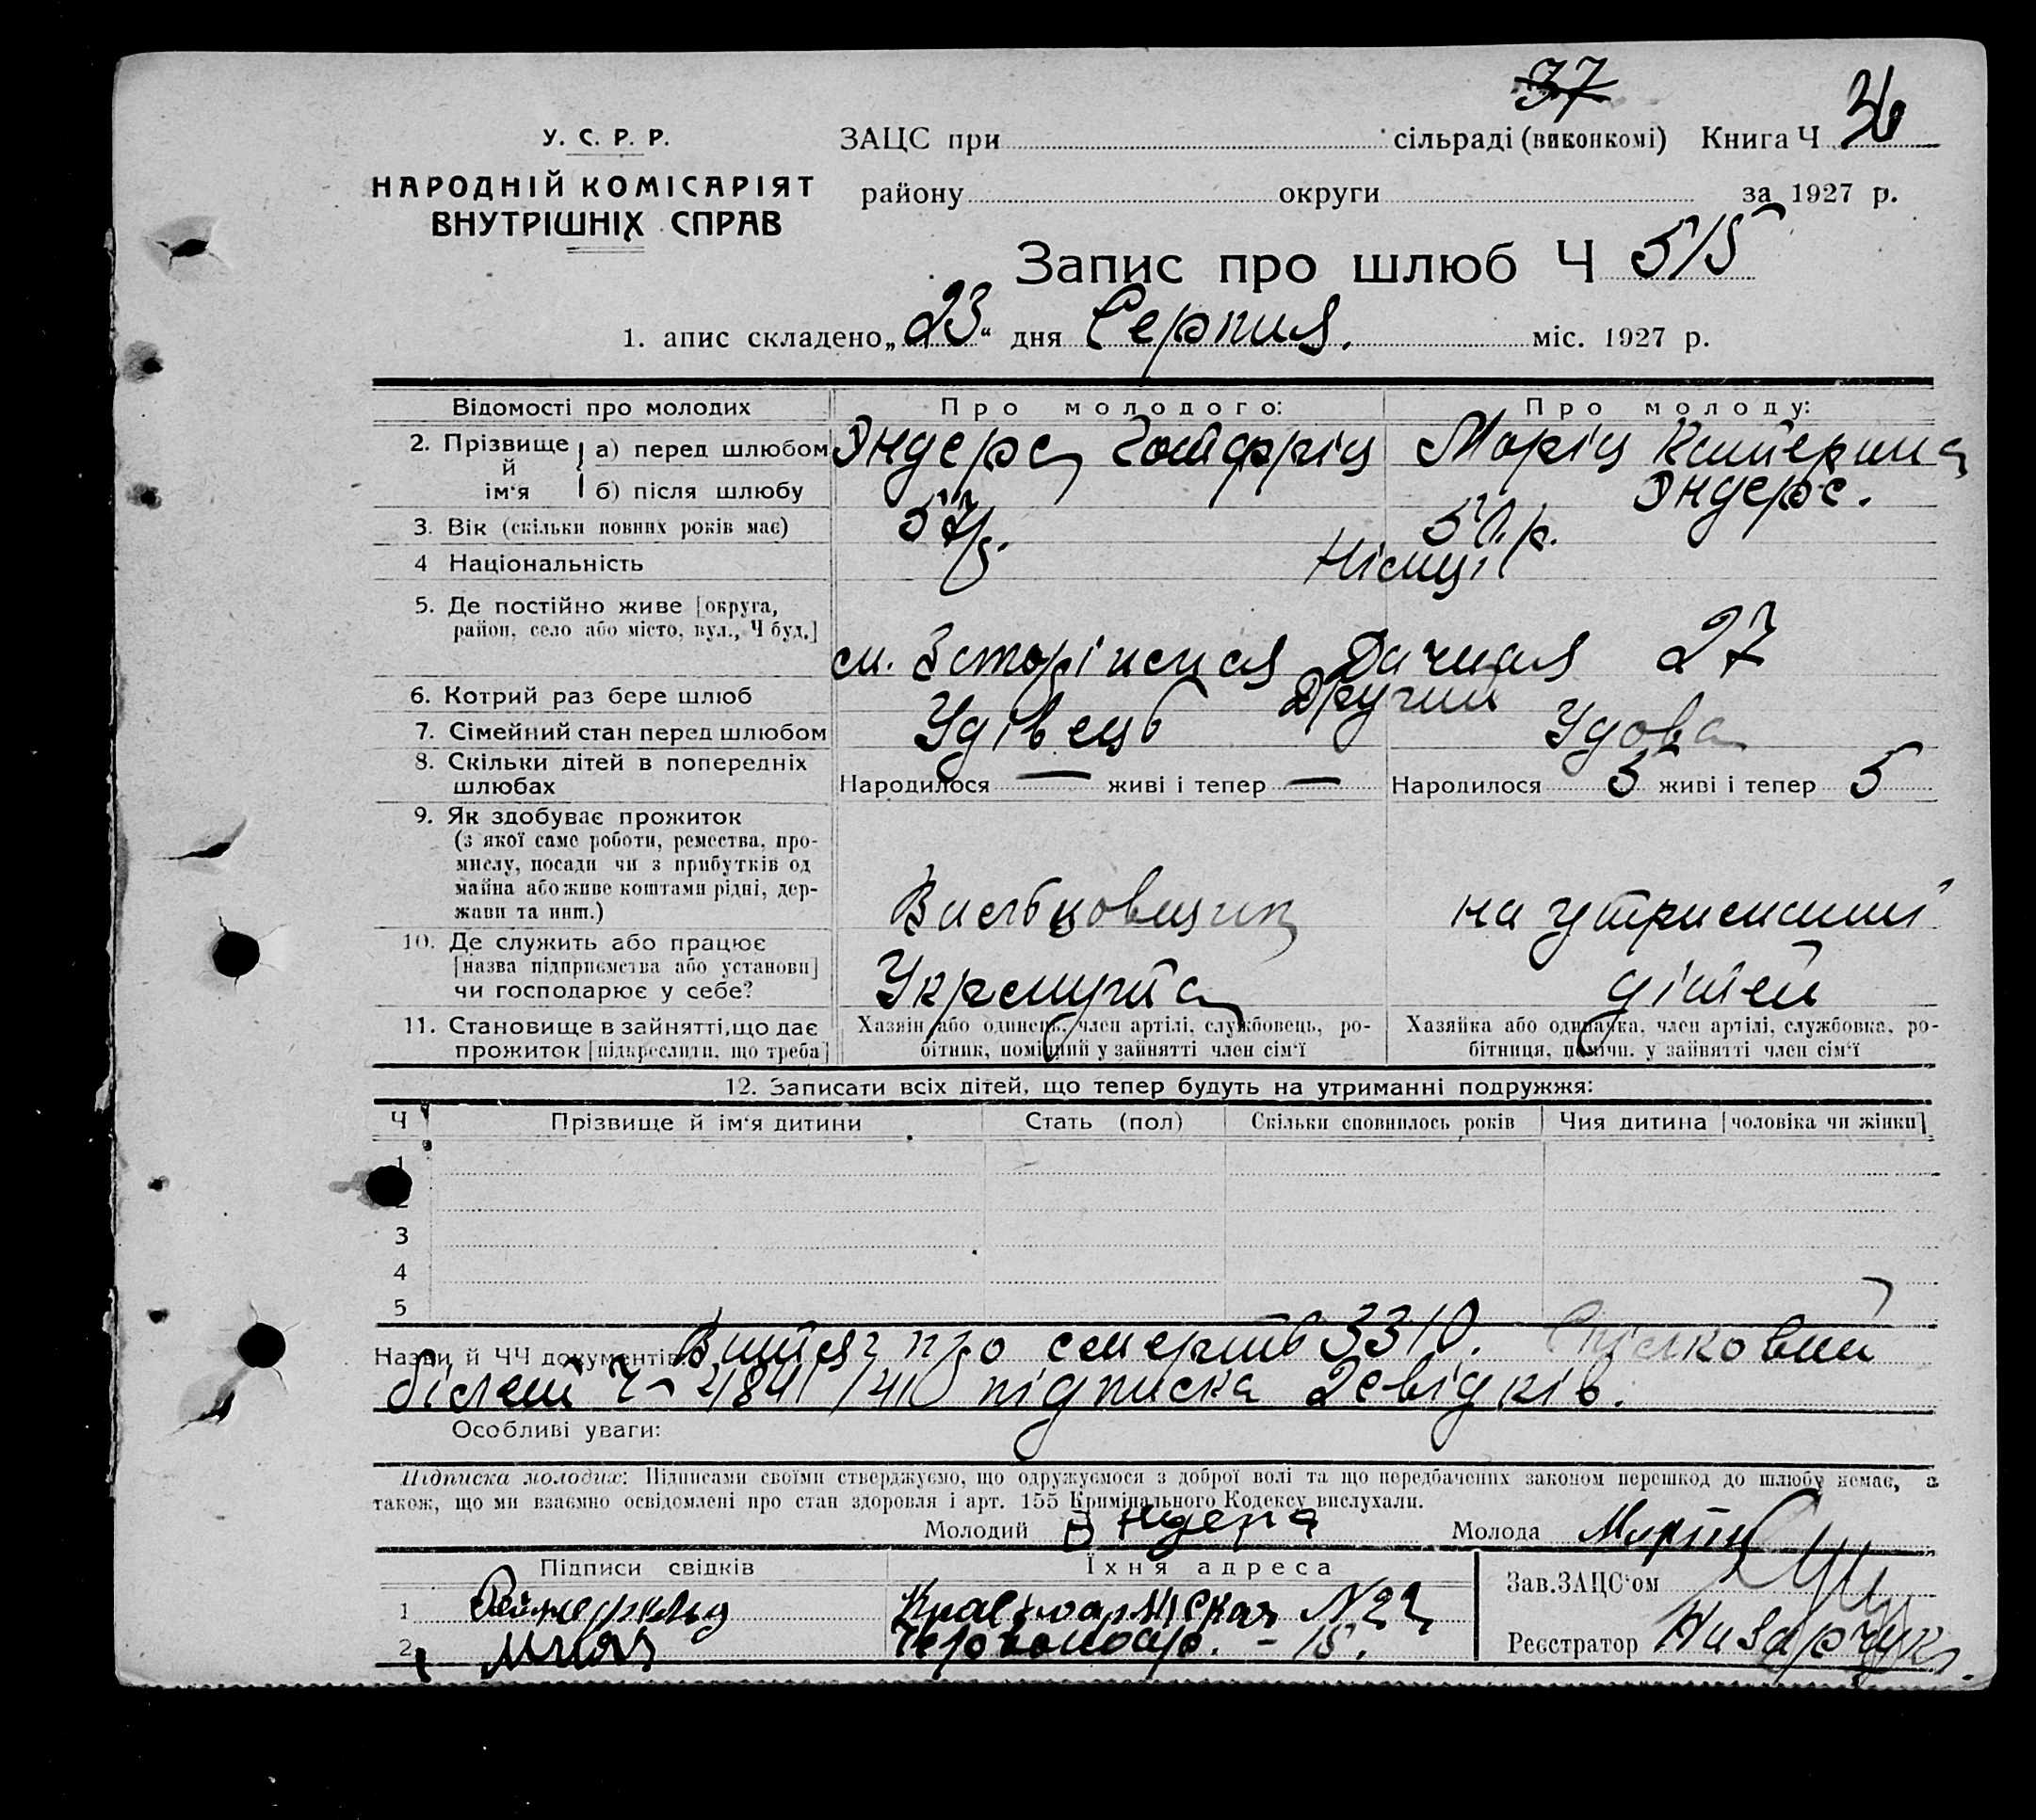 37
У. С. Р. Р.
НАРОДНІЙ КОМІСАРІЯТ
ВНУТРІШНІХ СПРАВ
ЗАЦС при сільраді (виконкомі) Книга Ч 36
району округи за 1927 р.
Запис про шлюб Ч 515
1. апис складено „23“ дня Серпня. міс. 1927 р.
Відомості про молодих Про молодого: Про молоду:
2. Прізвище й ім‘я а) перед шлюбом Эндерс Готфріц Моріц Катерина
б) після шлюбу Эндерс.
3. Вік (скільки повних років має) 57 р. 50 р.
4 Національність Німці
5. Де постійно живе [округа,
район, село або місто, вул., Ч буд.] Дачная 27
6. Котрий раз бере шлюб Другий
7. Сімейний стан перед шлюбом Удівець Удова
8. Скільки дітей в попередніх
шлюбах Народилося — живі і тепер — Народилося 5 живі і тепер 5
9. Як здобуває прожиток
(з якої саме роботи, ремества, про-
мислу, посади чи з прибутків од
майна або живе коштами рідні, дер-
жави та инш.) на утриманні
10. Де служить або працює
[назва підприємства або установи]
чи господарює у себе? дітей
11. Становище в зайнятті, що дає
прожиток [підкреслити, що треба]
Хазяін або одинець, член артілі, службовець, ро-
бітник, помічний у зайнятті член сім‘ї
Хазяйка або одиначка, член артілі, службовка, ро-
бітниця, помічн. у зайнятті член сім‘ї
12. Записати всіх дітей, що тепер будуть на утриманні подружжя:
Ч Прізвище й ім‘я дитини Стать (пол) Скільки сповнилось років Чия дитина [чоловіка чи жінки]
1
2
3
4
5
Назви й ЧЧ документів Витяг про смерть 3310. Спілковий
білет Ч підписка 2 свідків.
Особливі уваги:
Підписка молодих: Підписами своїми стверджуємо, що одружуємося з доброї волі та що передбачених законом перешкод до шлюбу немає, а
також, що ми взаємно освідомлені про стан здоровля і арт. 155 Кримінального Кодексу вислухали.
Молодий Эндерс Молода Моріц
Підписи свідків Їхня адреса
Зав.ЗАЦС‘ом
1 Красноармійская N 22
2 Червоноар. - 15.
Реєстратор Назарчук